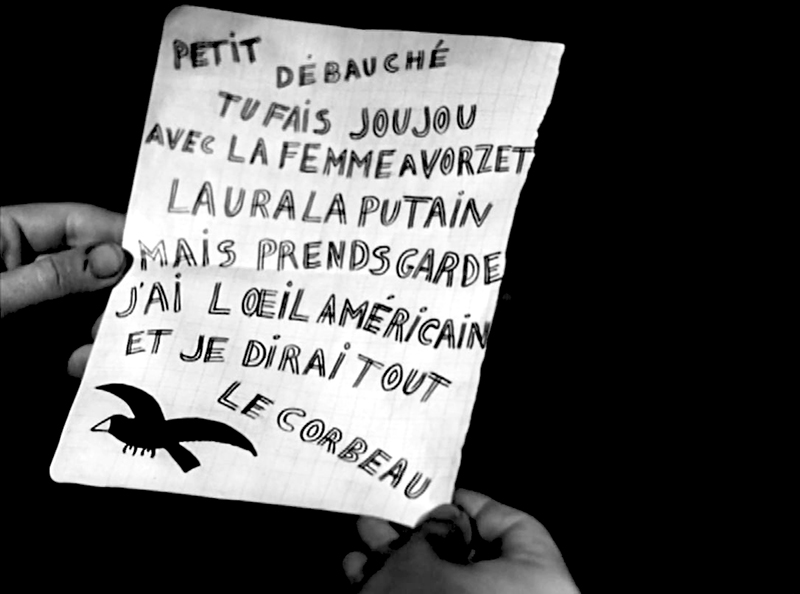 PETiT DÉBAUCHÉ
TU FAiS JOUJOU
AVEC LA FEMME A VORZET
LAURA LA PUTAiN
MAiS PRENDS GARDE
J'Ai L ŒiL AMÉRiCAiN
ET JE DiRAi TOUT
LE CORBEAU